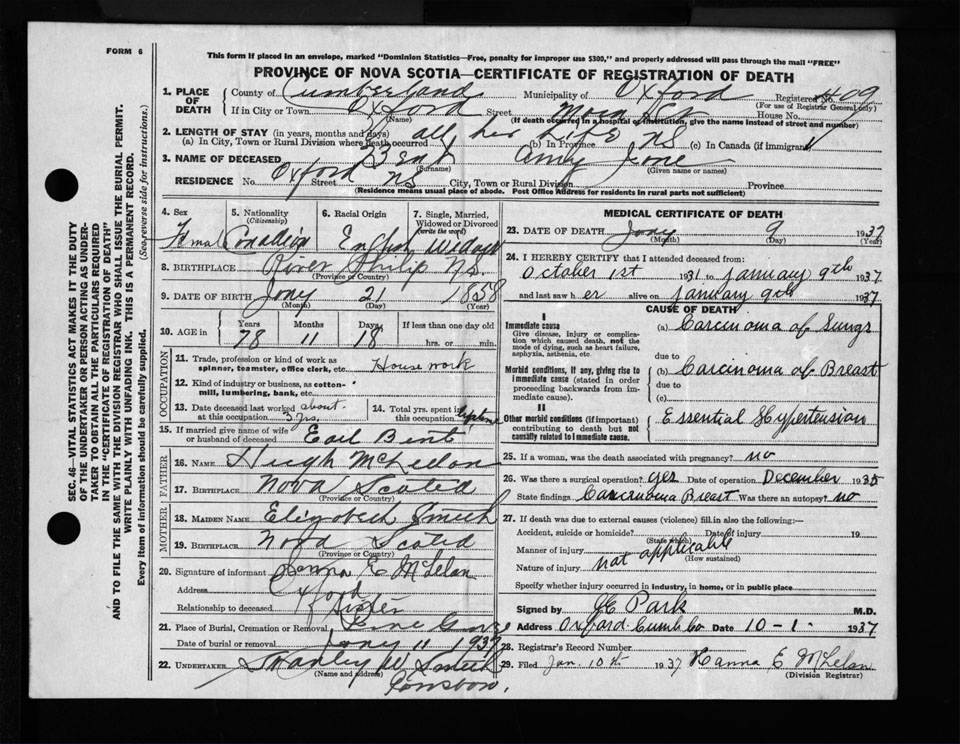 FORM 6
This form if placed in an envelope, marked "Dominion Statistics—Free, penalty for improper use $300," and properly addressed will pass through the mail "FREE"
PROVINCE OF NOVA SCOTIA—CERTIFICATE OF REGISTRATION OF DEATH
SEC. 46—VITAL STATISTICS ACT MAKES IT THE DUTY
OF THE UNDERTAKER OR PERSON ACTING AS UNDER-
TAKER TO OBTAIN ALL THE PARTICULARS REQUIRED
IN THE "CERTIFICATE OF REGISTRATION OF DEATH"
AND TO FILE THE SAME WITH THE DIVISION REGISTRAR WHO SHALL ISSUE THE BURIAL PERMIT.
WRITE PLAINLY WITH UNFADING INK. THIS IS A PERMANENT RECORD.
Every item of information should be carefully supplied. (See reverse side for instructions.)
1. PLACE OF DEATH County of Cumberland Municipality of Oxford Registered No. 409
(For use of Registrar General only)
If in City or Town Oxford Street House No.
(Name) (If death occurred in a hospital or institution, give the name instead of street and number)
2. LENGTH OF STAY (in years, months and days)
(a) In City, Town or Rural Division where death occurred all her Life (b) In Province NS (c) In Canada (if immigrant) "
3. NAME OF DECEASED Bent Amy Jane
(Surname) (Given name or names)
RESIDENCE No. Oxford Street NS City, Town or Rural Division Province
(Residence means usual place of abode. Post Office Address for residents in rural parts not sufficient)
4. Sex Femal
5. Nationality (Citizenship) Canadian
6. Racial Origin English
7. Single, Married, Widowed or Divorced (write the word) Widow
8. BIRTHPLACE River Philip N.S.
(Province or Country)
9. DATE OF BIRTH Jany 21 1858
(Month) (Day) (Year)
10. AGE in Years Months Days If less than one day
78 11 18 hrs. or min.
OCCUPATION
11. Trade, profession or kind of work as spinner, teamster, office clerk, etc. House work
12. Kind of industry or business, as cotton-mill, lumbering, bank, etc.
13. Date deceased last worked at this occupation about 3 yrs.
14. Total yrs. spent in this occupation lifetime
15. If married give name of wife or husband of deceased Earl Bent
FATHER
16. NAME Hugh McLelan
17. BIRTHPLACE Nova Scotia
(Province or Country)
MOTHER
18. MAIDEN NAME Elizabeth Smith
19. BIRTHPLACE Nova Scotia
(Province or Country)
20. Signature of informant Hanna E McLelan
Address Oxford
Relationship to deceased Sister
21. Place of Burial, Cremation or Removal Pine Grove
Date of burial or removal Jany 11 1937
22. UNDERTAKER Stanley W Smith
(Name and address)
MEDICAL CERTIFICATE OF DEATH
23. DATE OF DEATH Jany 9 1937
(Month) (Day) (Year)
24. I HEREBY CERTIFY that I attended deceased from:
October 1st 1931 to January 9th 1937
and last saw her alive on January 9th 1937
CAUSE OF DEATH
I
Immediate cause (a) Carcinoma of Lungs
Give disease, injury or complication which caused death, not the mode of dying, such as heart failure, asphyxia, asthenia, etc. due to
Morbid conditions, if any, giving rise to immediate cause (stated in order proceeding backwards from immediate cause). (b) Carcinoma of Breast
due to
(c)
II
Other morbid conditions (if important) contributing to death but not causally related to immediate cause. Essential Hypertension
25. If a woman, was the death associated with pregnancy? no
26. Was there a surgical operation? yes Date of operation December 1935
State findings Carcinoma Breast Was there an autopsy? no
27. If death was due to external causes (violence) fill in also the following:—
Accident, suicide or homicide? Date of injury 19
(State which)
Manner of injury not applicable
(How sustained)
Nature of injury
Specify whether injury occurred in industry, in home, or in public place
Signed by J E Park M.D.
Address Oxford Cumb Co Date 10-1- 1937
28. Registrar's Record Number
29. Filed Jan. 10th 1937 Hanna E McLelan
(Division Registrar)